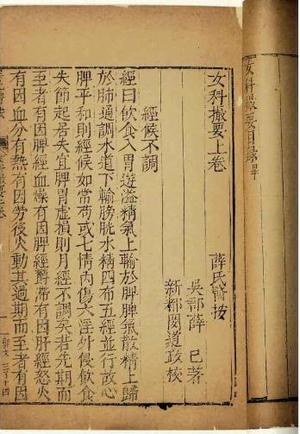 女科撮要目錄畢
女科撮要上卷　薛氏醫按
吳郡薛己著
新都閔道政校
經候不調
經曰飲食入胃遊溢精氣上輸於脾脾氣散精上歸
於肺通調水道下輸膀胱水精四布五經並行故心
脾平和則經候如常苟或七情內傷六淫外侵飲食
失節起居失宜脾胃虛損則月經不調矣若先期而
至者有因脾經血燥有因脾經鬱滯有因肝經怒火
有因血分有熱有因勞役火動其過期而至者有因